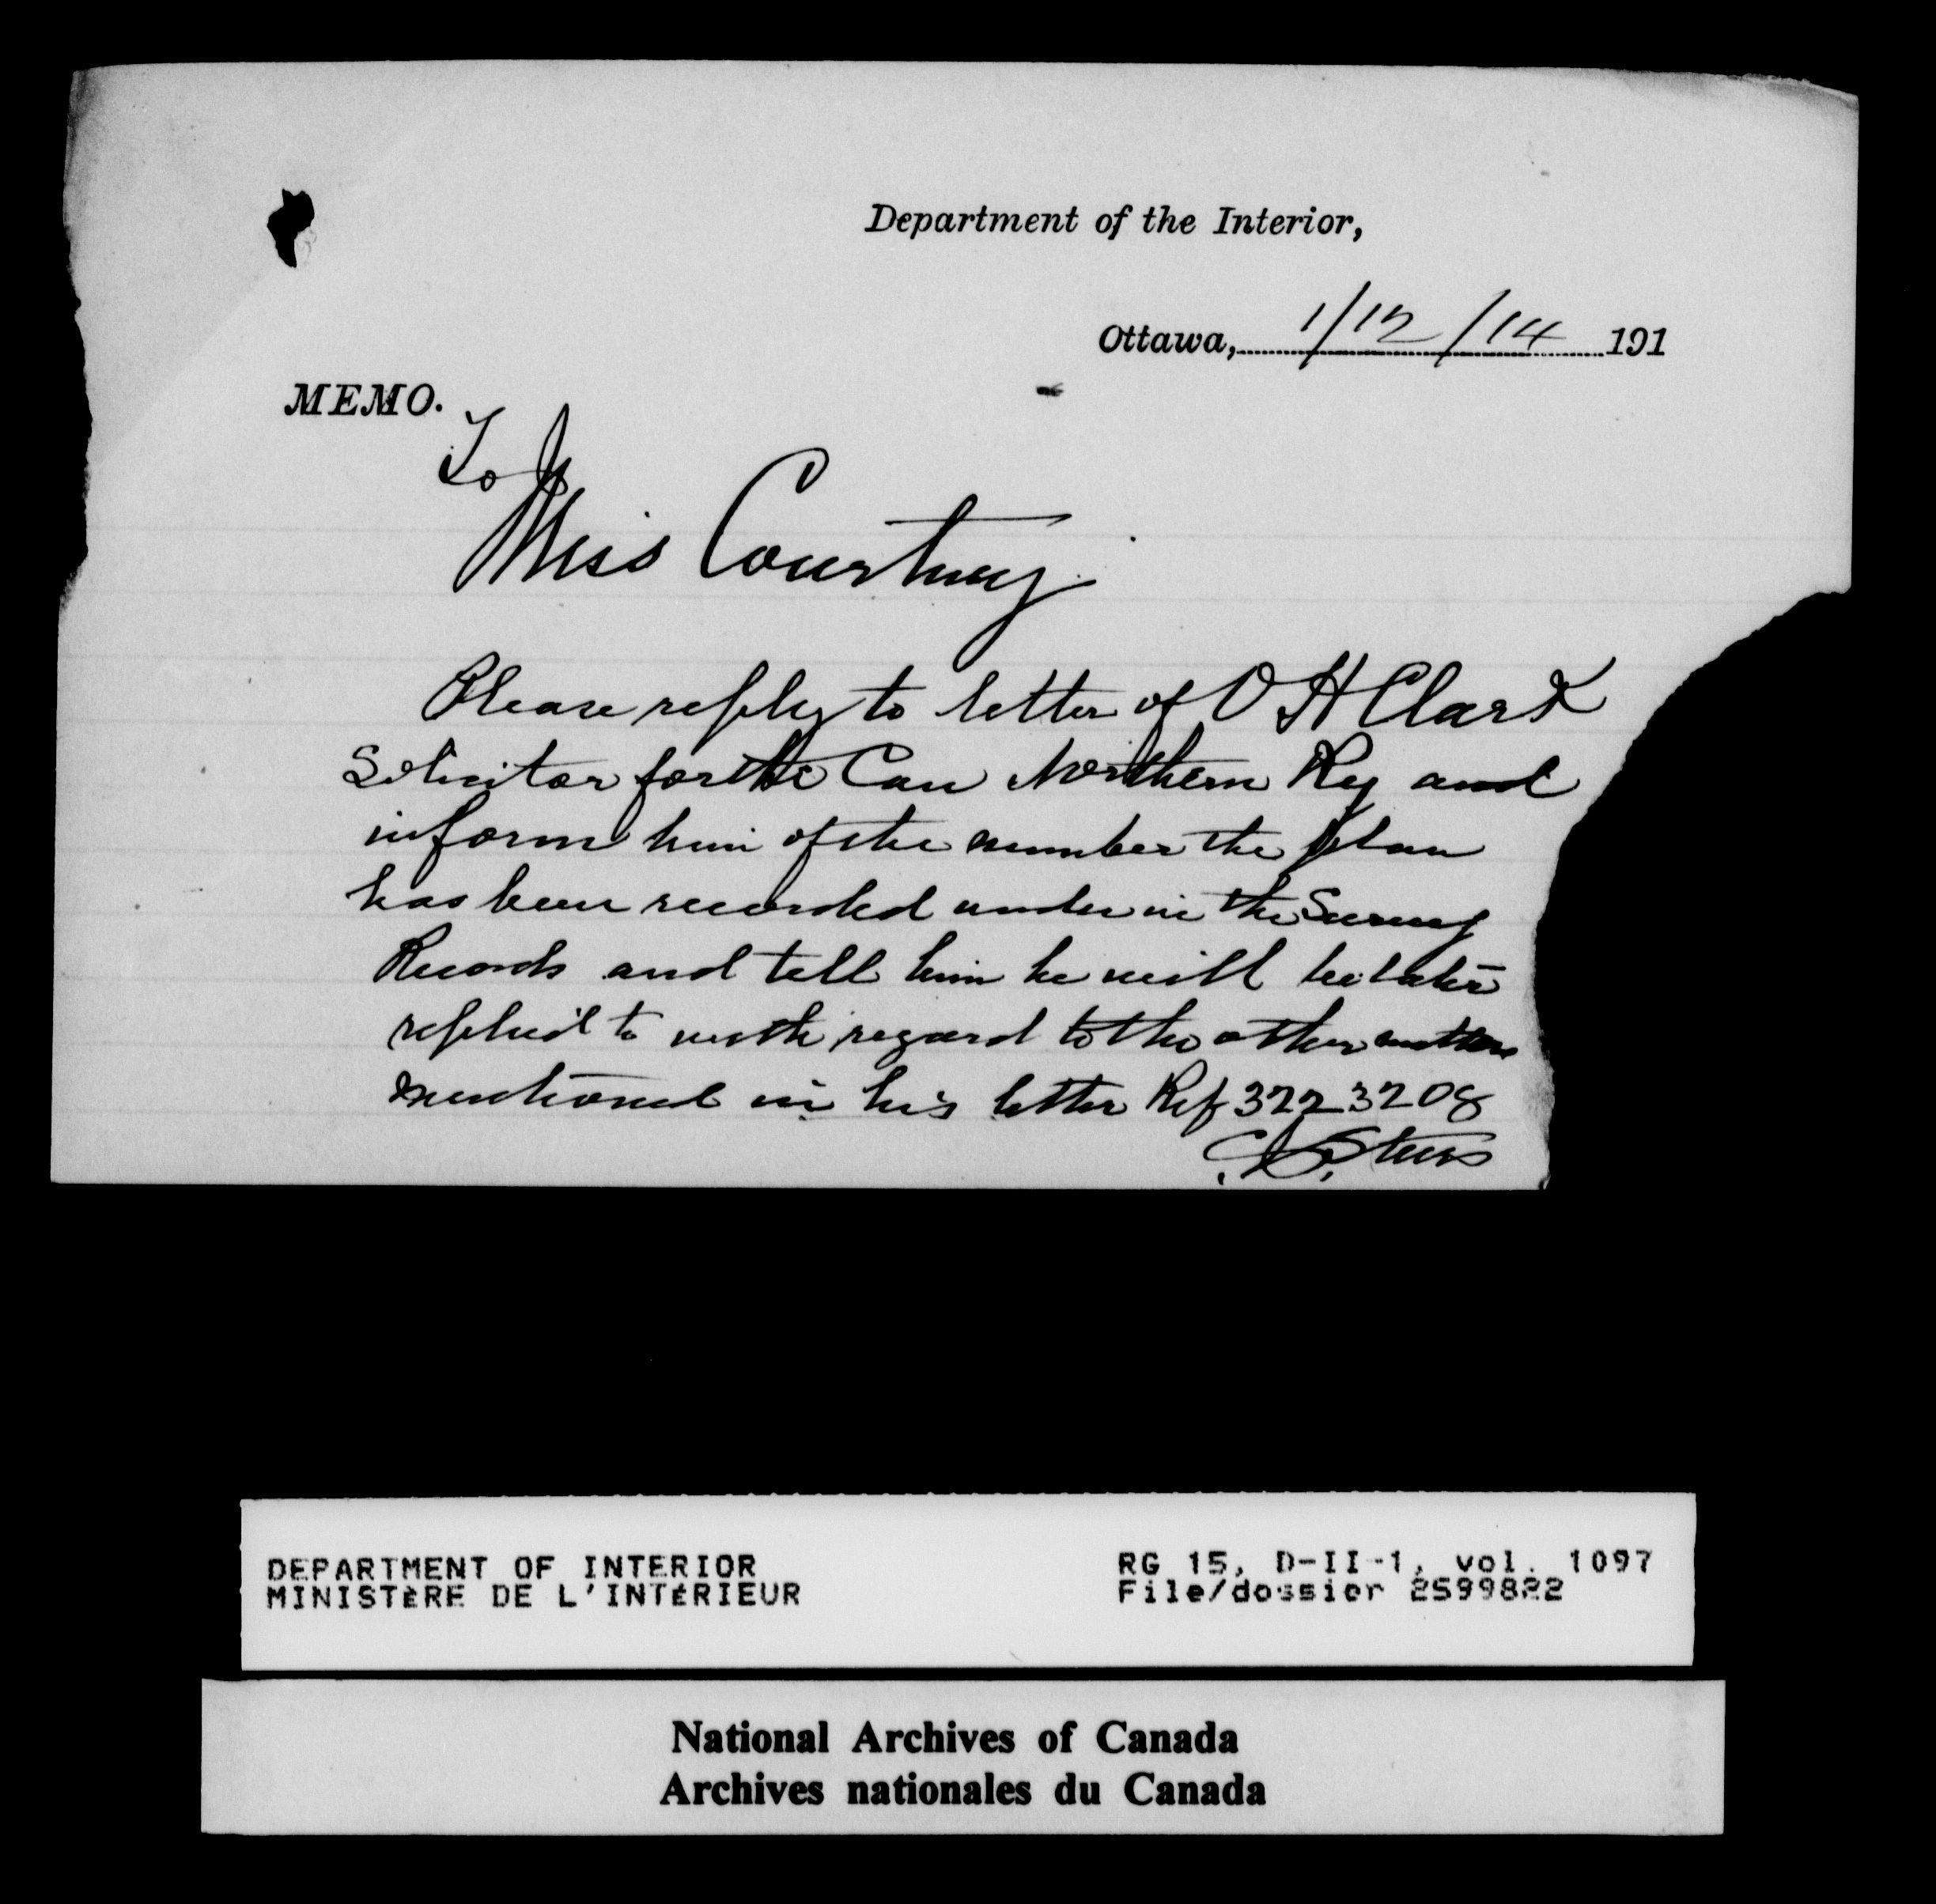 Department of the Interior,
Ottawa, 1/12/14 191
MEMO.
To
Miss Courtney
Please reply to letter of O H Clark
Solicitor for the Can Northern Ry and
inform him of the number the plan
has been recorded under in the Survey
Records and tell him he will be later
replied to with regard to the other matters
mentioned in his letter Ref 3223208
DEPARTMENT OF INTERIOR
MINISTÈRE DE L'INTÉRIEUR
RG 15, D-II-1, vol. 1097
File/dossier 2599822
National Archives of Canada
Archives nationales du Canada